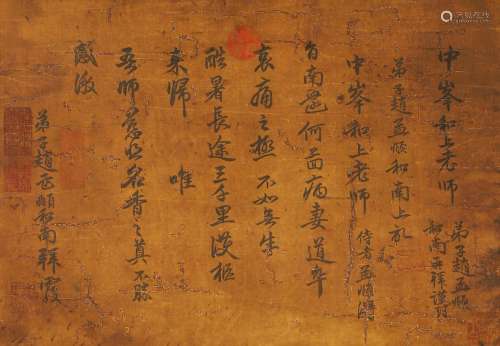 中峯和上老師
弟子趙孟頫
和南再拜謹封
弟子趙孟頫和南上
中峯和上老師 侍者孟頫
自南還何啚病妻道卒
哀痛之極不如無生
酷暑長途三千里護柩
來歸 唯
吾師慈 名香之奠不勝
感激
弟子趙孟頫和南拜覆